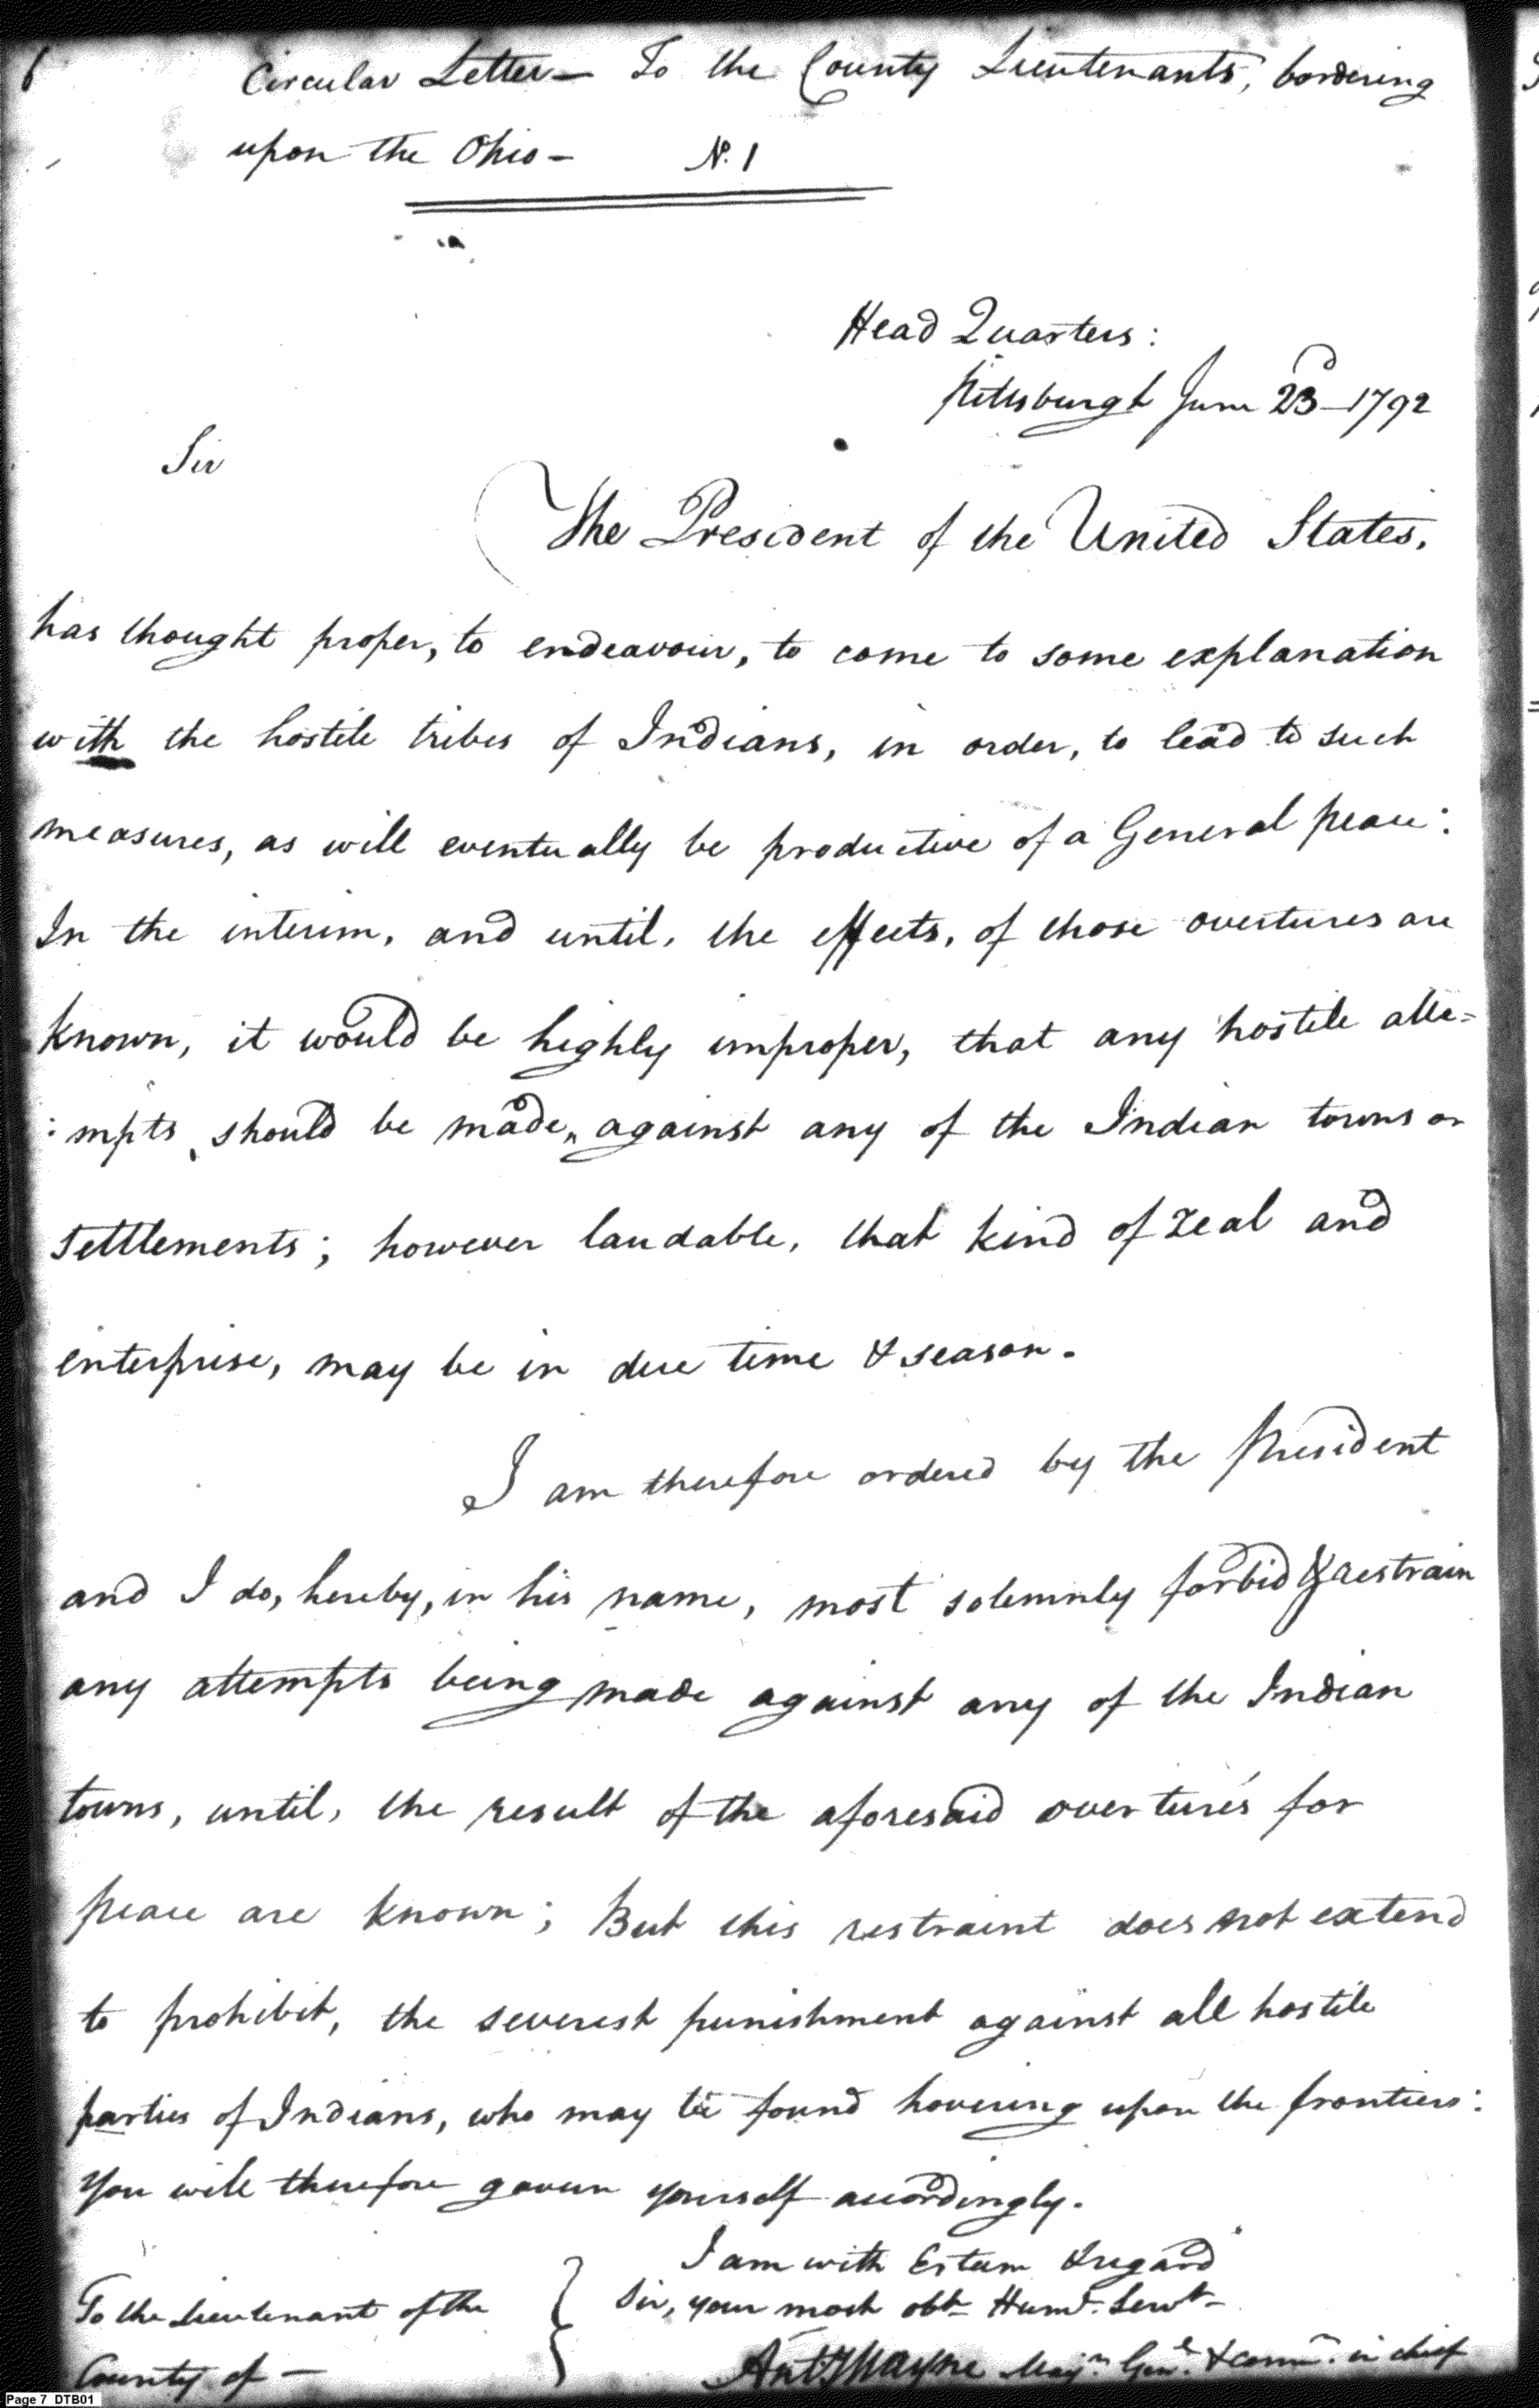 6
Circular Letter — To the County Lieutenants, bordering
upon the Ohio — No. 1
Head Quarters:
Pittsburgh June 23d — 1792
Sir
The President of the United States,
has thought proper, to endeavour, to come to some explanation
with the hostile tribes of Indians, in order, to lead to such
measures, as will eventually be productive of a General peace:
In the interim, and until, the effects, of those overtures are
known, it would be highly improper, that any hostile atte=
:mpts, should be made, against any of the Indian towns or
settlements; however laudable, that kind of zeal and
enterprise, may be in due time & season.
I am therefore ordered by the President
and I do, hereby, in his name, most solemnly forbid & restrain
any attempts being made against any of the Indian
towns, until, the result of the aforesaid overtures for
peace are known; But this restraint does not extend
to prohibit, the severest punishment against all hostile
parties of Indians, who may be found hovering upon the frontiers:
You will therefore govern yourself accordingly.
I am with Esteem & regard
Sir, your most obt. Huml. Servt.
To the Lieutenant of the
County of —
Anty Wayne Majr. Genl. & comm. in chief
Page 7 DTB01